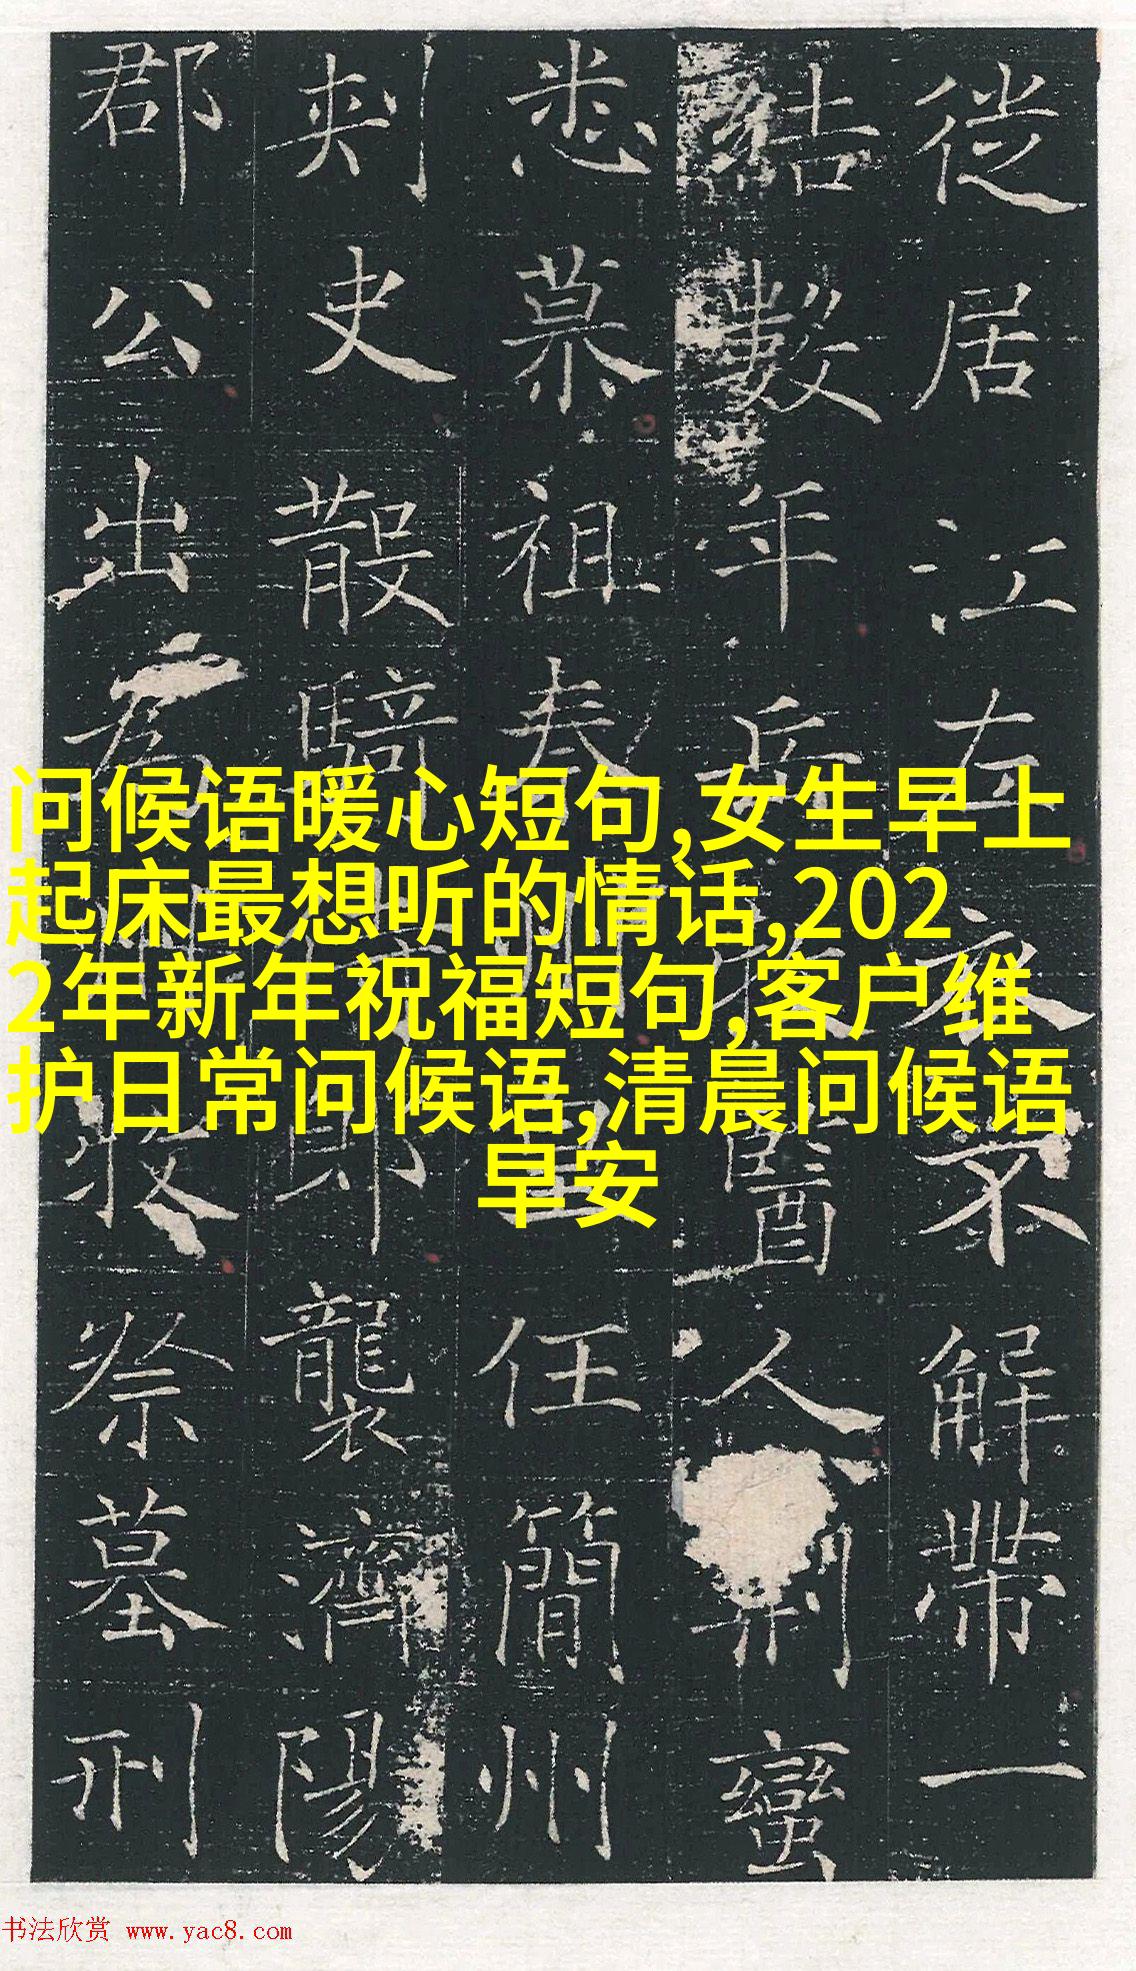 徙居江左衣不解帶一
結數年 醫人荆蠻
悉慕祖 任簡州
刺史散騎侍郎襲濟陽
郡公出為 將祭墓刑
问候语暖心短句,女生早上
起床最想听的情话,202
2年新年祝福短句,客户维
护日常问候语,清晨问候语
早安
书法欣赏 www.yac8.com